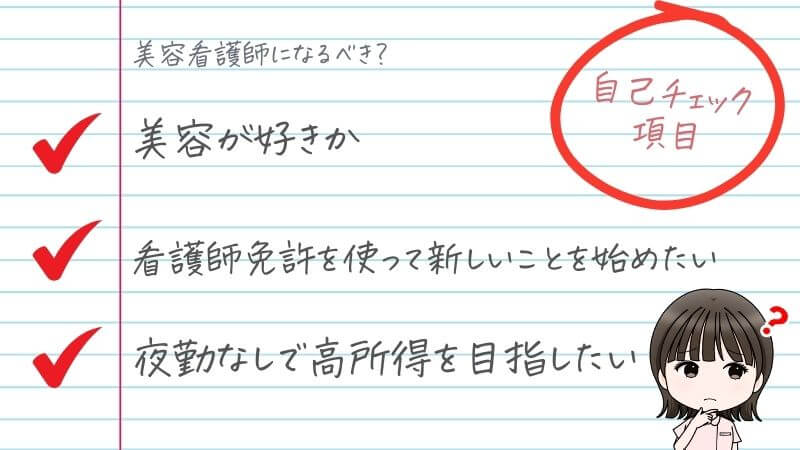 美容看護師になるべき?
自己チェック
項目
美容が好きか
看護師免許を使って新しいことを始めたい
夜勤なしで高所得を目指したい
?